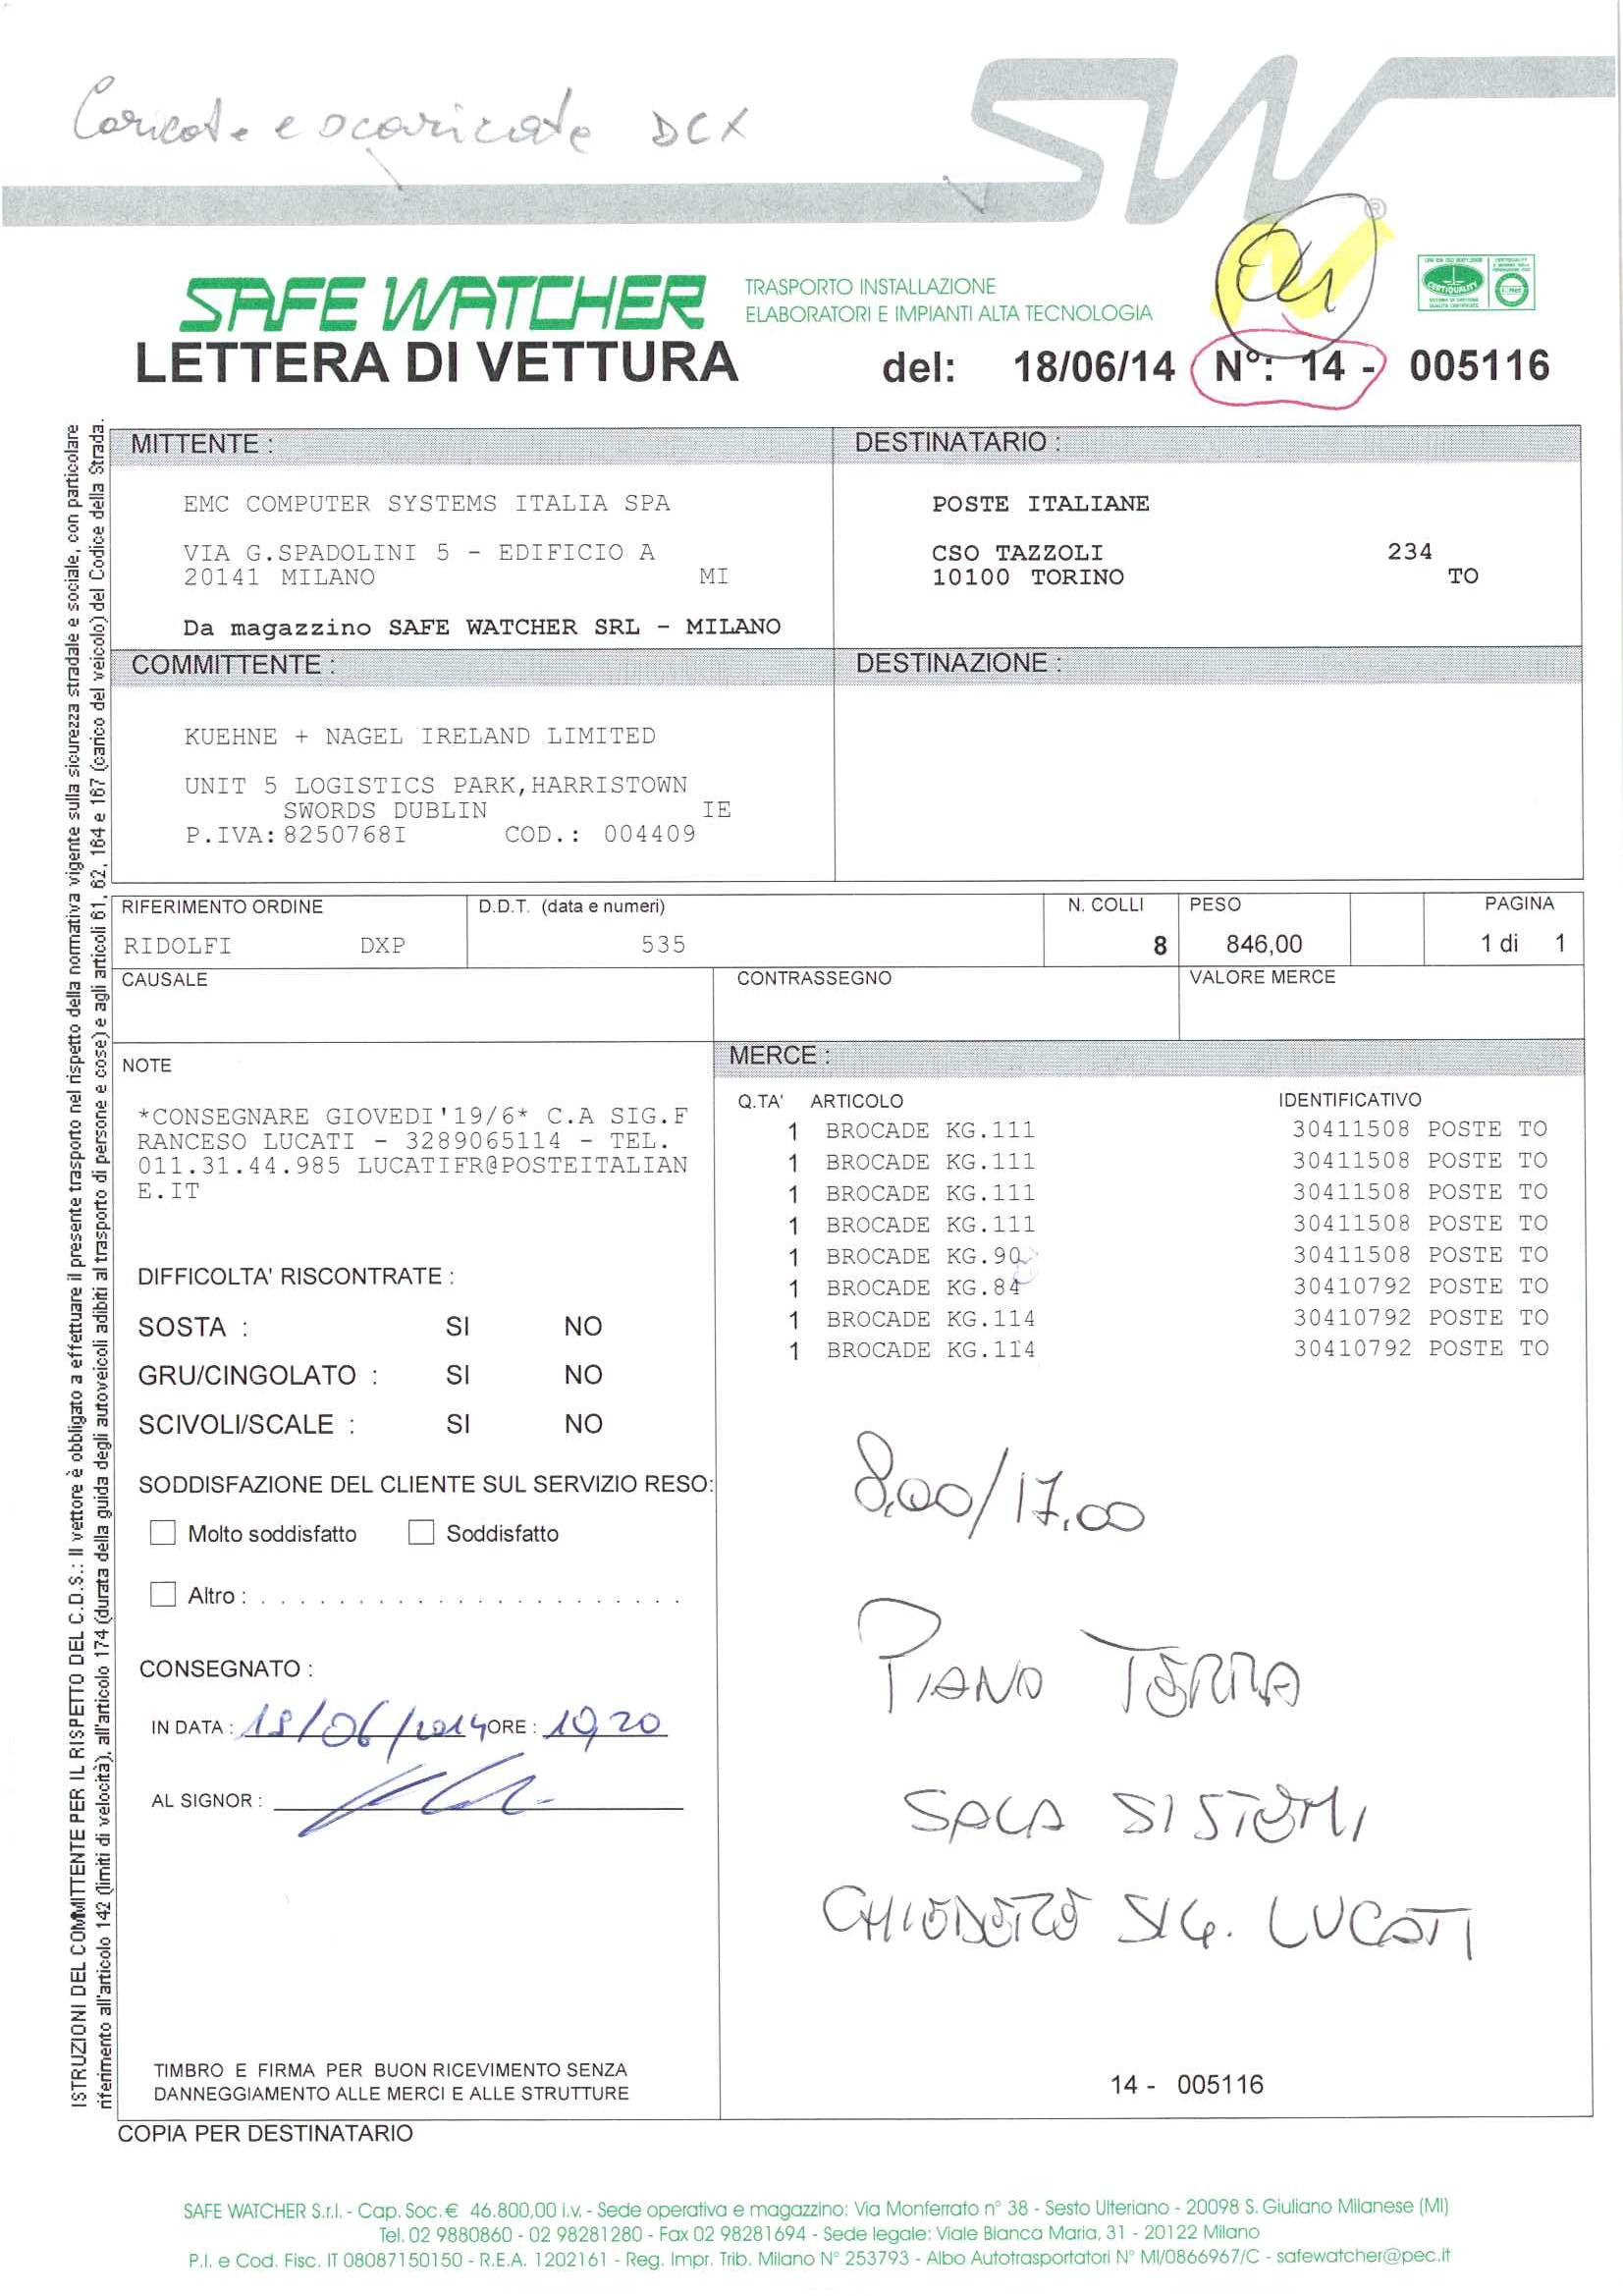 Caricate e scaricate DCX
SW®
SAFE WATCHER
TRASPORTO INSTALLAZIONE
ELABORATORI E IMPIANTI ALTA TECNOLOGIA
CERTIQUALITY
LETTERA DI VETTURA del: 18/06/14 N°: 14 - 005116
ISTRUZIONI DEL COMMITTENTE PER IL RISPETTO DEL C.D.S.: Il vettore è obbligato a effettuare il presente trasporto nel rispetto della normativa vigente sulla sicurezza stradale e sociale, con particolare
riferimento all'articolo 142 (limiti di velocità), all'articolo 174 (durata della guida degli autoveicoli adibiti al trasporto di persone e cose) e agli articoli 61, 62, 164 e 167 (carico del veicolo) del Codice della Strada.
MITTENTE :
EMC COMPUTER SYSTEMS ITALIA SPA
VIA G.SPADOLINI 5 - EDIFICIO A
20141 MILANO MI
Da magazzino SAFE WATCHER SRL - MILANO
DESTINATARIO :
POSTE ITALIANE
CSO TAZZOLI 234
10100 TORINO TO
COMMITTENTE :
KUEHNE + NAGEL IRELAND LIMITED
UNIT 5 LOGISTICS PARK,HARRISTOWN
SWORDS DUBLIN IE
P.IVA:8250768I COD.: 004409
DESTINAZIONE :
RIFERIMENTO ORDINE D.D.T. (data e numeri) N. COLLI PESO PAGINA
RIDOLFI DXP 535 8 846,00 1 di 1
CAUSALE CONTRASSEGNO VALORE MERCE
NOTE
*CONSEGNARE GIOVEDI'19/6* C.A SIG.F
RANCESO LUCATI - 3289065114 - TEL.
011.31.44.985 LUCATIFR@POSTEITALIAN
E.IT
DIFFICOLTA' RISCONTRATE :
SOSTA : SI NO
GRU/CINGOLATO : SI NO
SCIVOLI/SCALE : SI NO
SODDISFAZIONE DEL CLIENTE SUL SERVIZIO RESO:
Molto soddisfatto Soddisfatto
Altro : . . . . . . . . . . . . . . . . . . . . . . .
CONSEGNATO :
IN DATA : 19/06/2014 ORE : 10,20
AL SIGNOR :
TIMBRO E FIRMA PER BUON RICEVIMENTO SENZA
DANNEGGIAMENTO ALLE MERCI E ALLE STRUTTURE
MERCE :
Q.TA' ARTICOLO IDENTIFICATIVO
1 BROCADE KG.111 30411508 POSTE TO
1 BROCADE KG.111 30411508 POSTE TO
1 BROCADE KG.111 30411508 POSTE TO
1 BROCADE KG.111 30411508 POSTE TO
1 BROCADE KG.90 30411508 POSTE TO
1 BROCADE KG.84 30410792 POSTE TO
1 BROCADE KG.114 30410792 POSTE TO
1 BROCADE KG.114 30410792 POSTE TO
8,00/17,00
PIANO TERRA
SALA SISTEMI
CHIEDERE SIG. LUCATI
14 - 005116
COPIA PER DESTINATARIO
SAFE WATCHER S.r.l. - Cap. Soc. € 46.800,00 i.v. - Sede operativa e magazzino: Via Monferrato n° 38 - Sesto Ulteriano - 20098 S. Giuliano Milanese (MI)
Tel. 02 9880860 - 02 98281280 - Fax 02 98281694 - Sede legale: Viale Bianca Maria, 31 - 20122 Milano
P.I. e Cod. Fisc. IT 08087150150 - R.E.A. 1202161 - Reg. Impr. Trib. Milano N° 253793 - Albo Autotrasportatori N° MI/0866967/C - safewatcher@pec.it